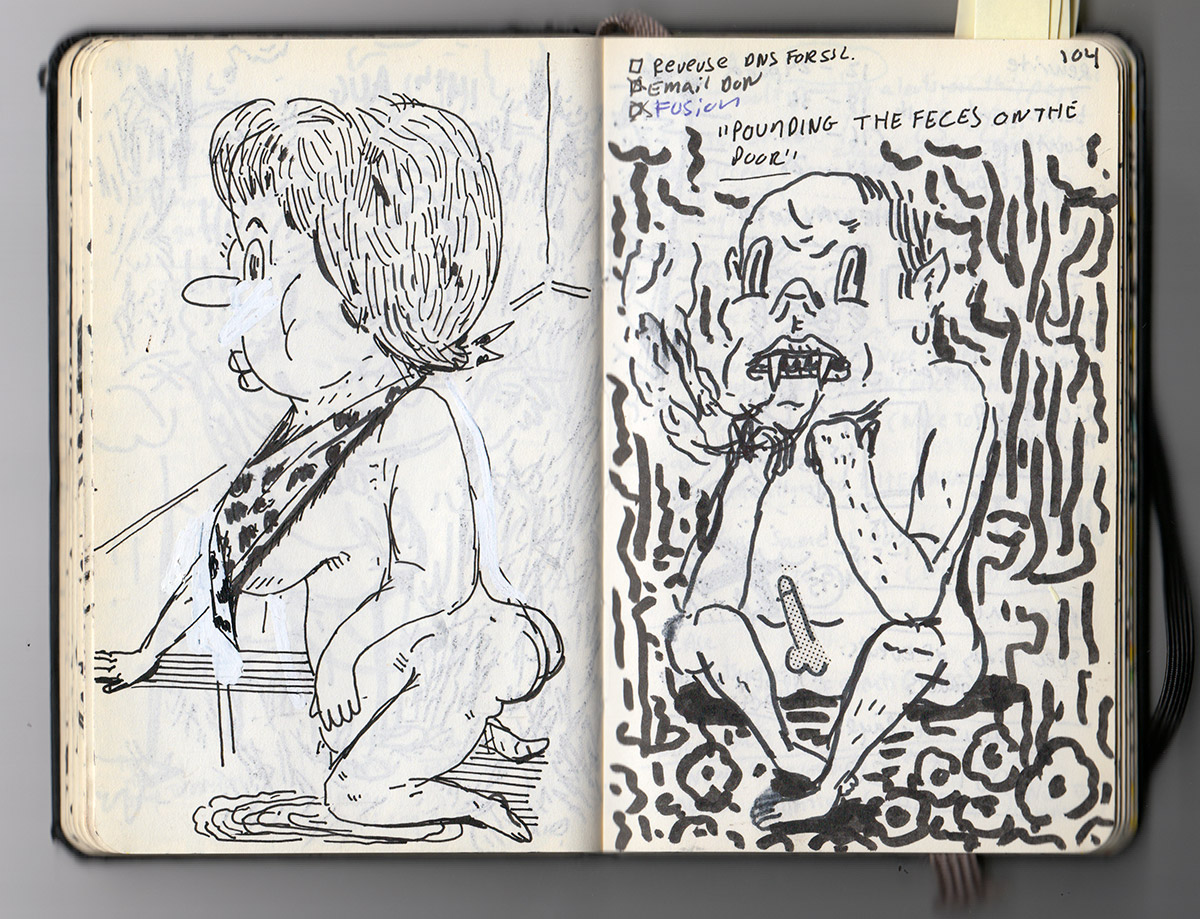 104
□ Reveuse DNS FOR SSL.
☒ Email Don
☒ Fusion
"POUNDING THE FECES ON THE
DOOR"